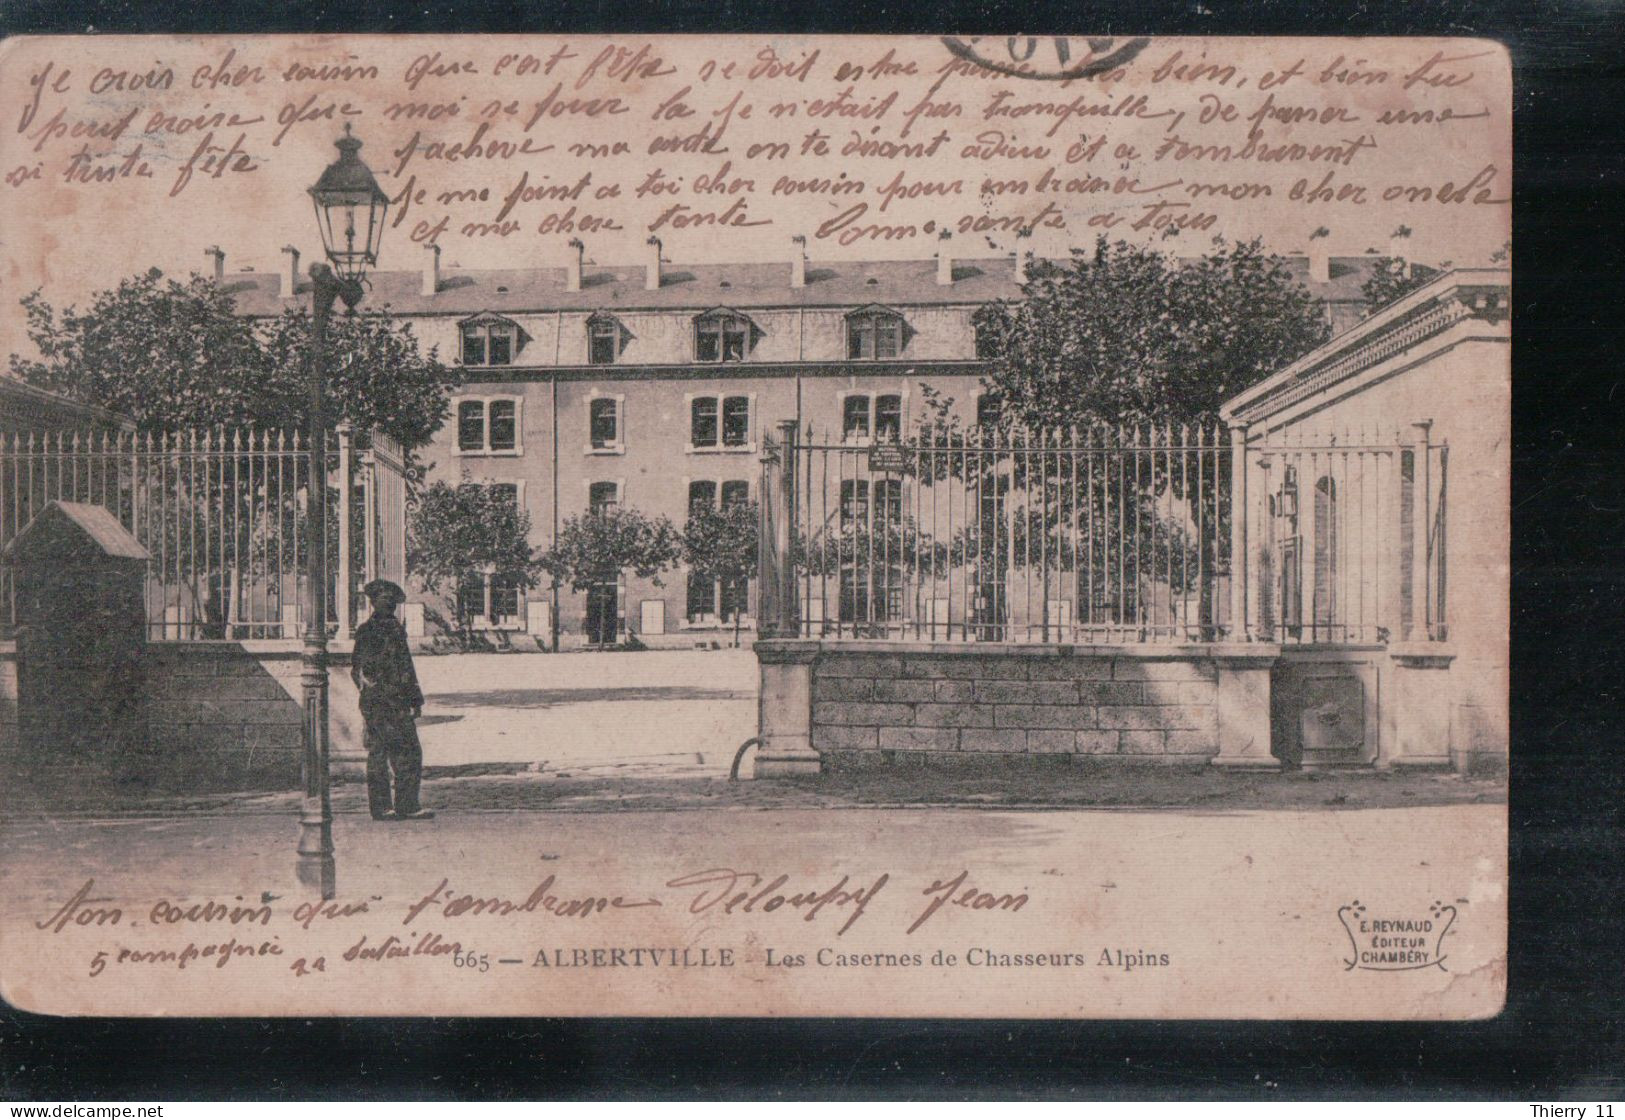 Je crois cher cousin que c'est fête se doit estre passe pas bien, et bien tu
peut croire que moi se jour la je n'etait pas tranquille, de passer une
si triste fête
j'acheve ma carte en te disant adieu et a t'embrassent
je me joint a toi cher cousin pour embrasser mon cher oncle
et ma chere tante bonne sante a tous
Ton cousin qui t'embrasse Jean
5 compagnie 22 bataillon
665 — ALBERTVILLE - Les Casernes de Chasseurs Alpins
E. REYNAUD
ÉDITEUR
CHAMBÉRY
Thierry 11